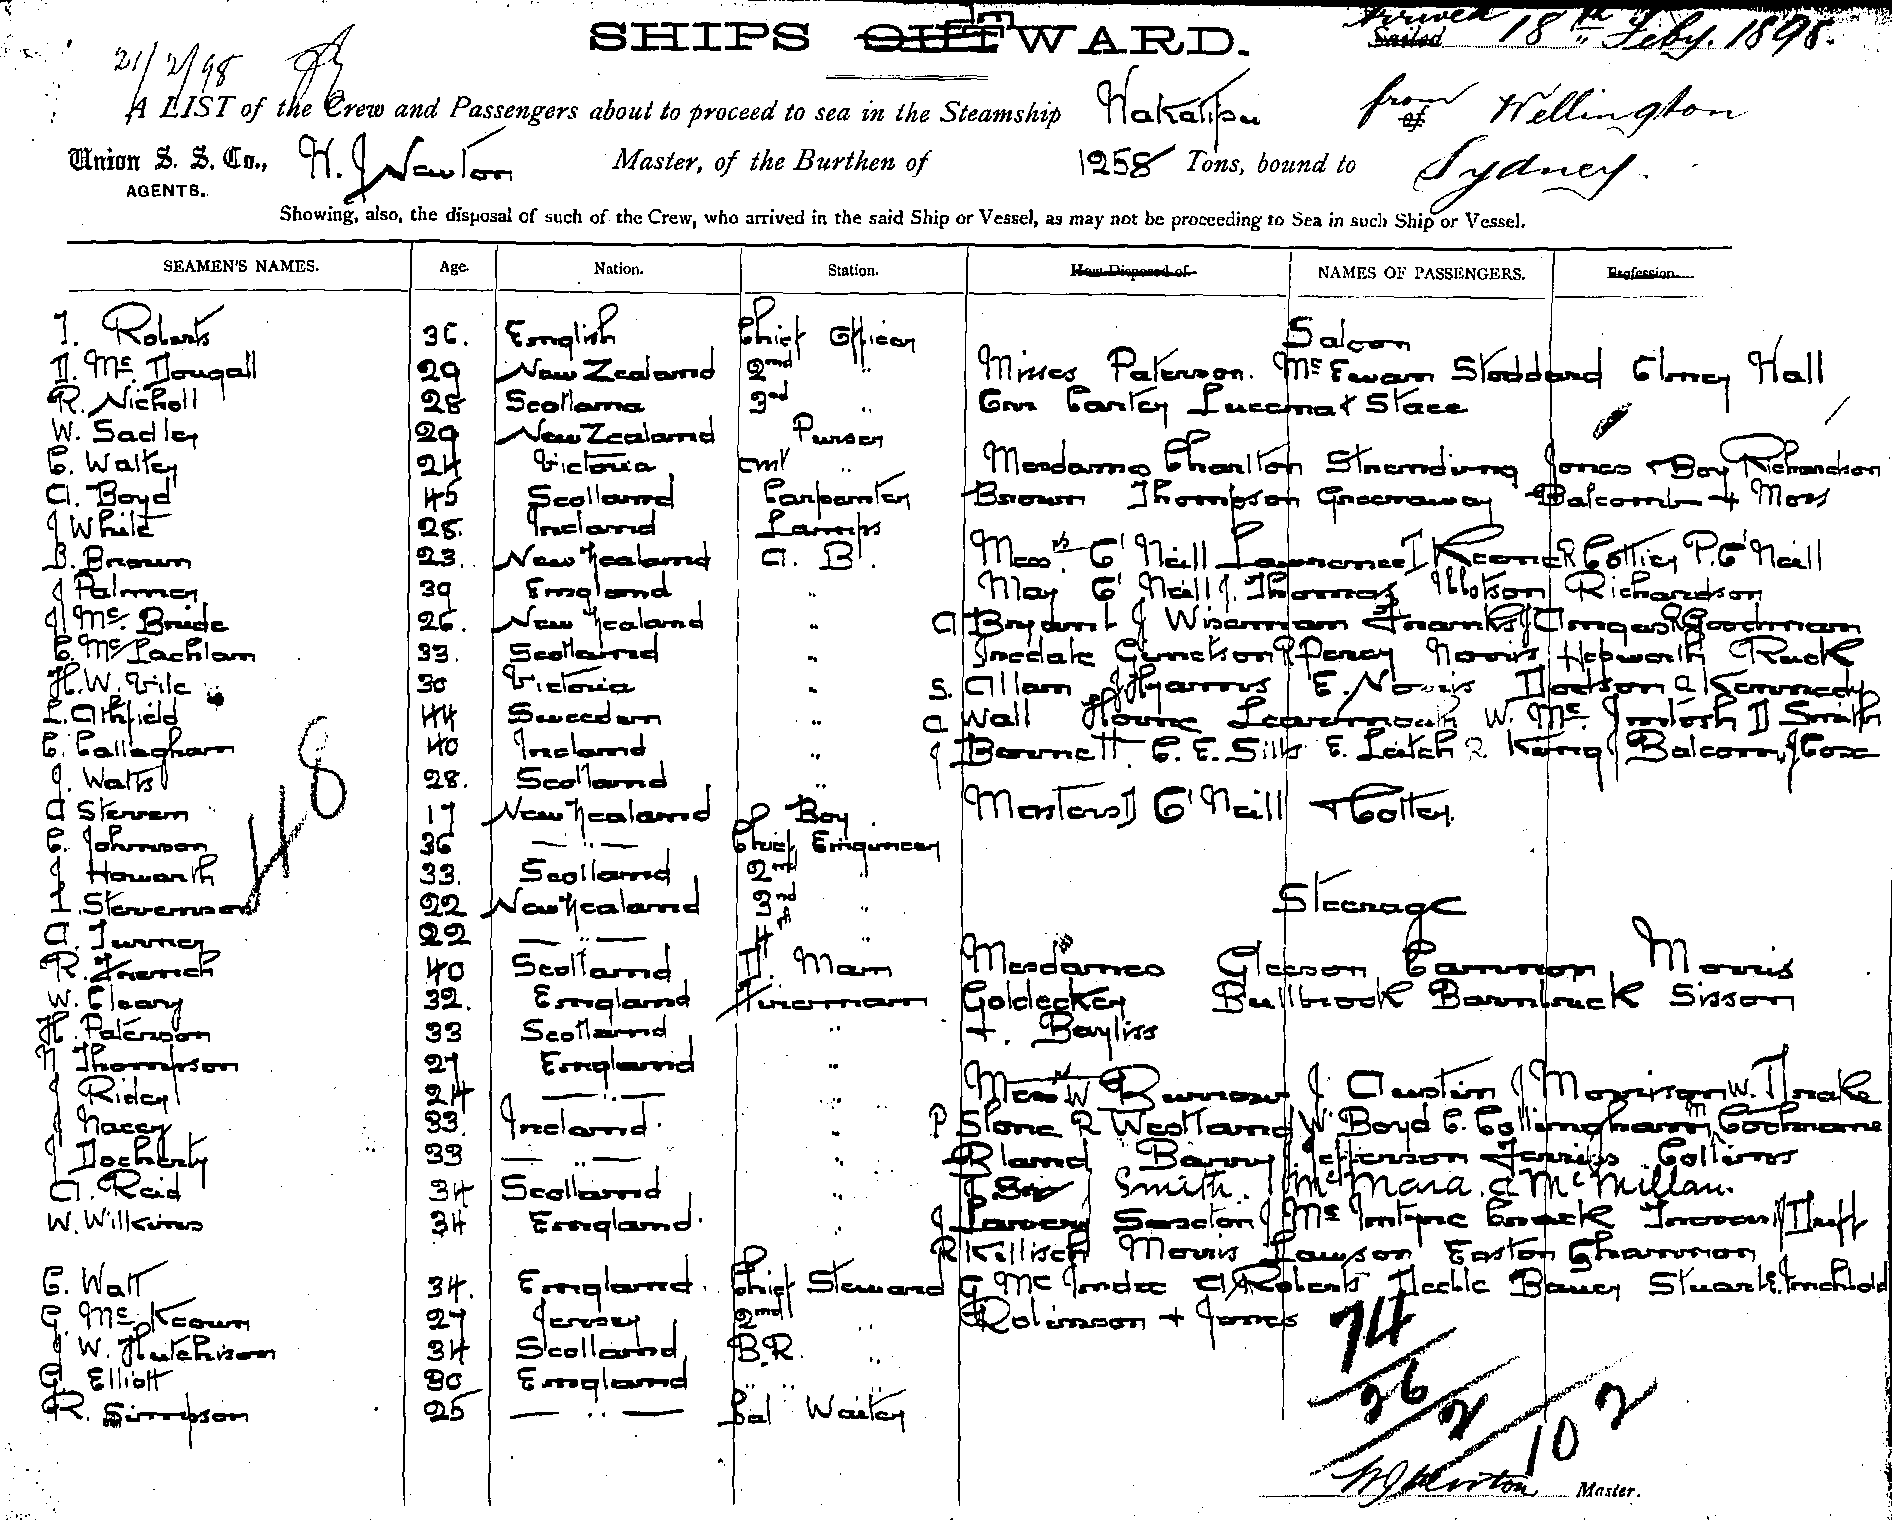 SHIPS INWARD.
Arrived 18th Feby. 1898.
Sailed
21/2/98
A LIST of the Crew and Passengers about to proceed to sea in the Steamship Wakatipu from Wellington
of
Union S. S. Co., H. J Newton Master, of the Burthen of 1258 Tons, bound to Sydney.
AGENTS.
Showing, also, the disposal of such of the Crew, who arrived in the said Ship or Vessel, as may not be proceeding to Sea in such Ship or Vessel.
SEAMEN'S NAMES. Age. Nation. Station. How Disposed of. NAMES OF PASSENGERS. Profession.
T. Roberts 36. English Chief Officer
D. Mc. Dougall 29 New Zealand 2nd "
R. Nicholl 28 Scotland 3rd "
W. Sadler 29 New Zealand Purser
C. Walter 24 Victoria asst "
A. Boyd 45 Scotland Carpenter
J White 25. Ireland Lamps
B. Brown 23. New Zealand A. B.
J Palmer 39 England "
J Mc. Bride 26. New Zealand "
C. Mc Lachlan 33. Scotland "
H. W. Vile 30 Victoria "
L. Athfield 44 Sweeden "
C. Callaghan 40 Ireland "
J. Watts 28. Scotland "
A Steven 17 New Zealand Boy
C. Johnson 36 — " — Chief Engineer
J Howarth 33. Scotland 2nd
T. Stevenson 22 New Zealand 3rd "
A. Turner 22 — " — 4th "
R. French 40 Scotland D. Man
W. Cleary 32. England Fireman
H. Paterson 33 Scotland "
N Thompson 27 England "
J Rider 24 — " — "
J Nacey 33. Ireland "
J Docherty 33 — " — "
A. Reid 34 Scotland "
W. Wilkins 34 England "
C. Watt 34. England. Chief Steward
G. Mc Keown 27 Jersey 2nd "
J W. Hutchison 34 Scotland B.R. "
G Elliott 30 England " " "
R. Simpson 25 — " — Sal Waiter
48
Saloon
Misses Paterson. Mc Ewan Stoddard Hall
Carter & Stace
Mesdames Charlton Jones & Boy Richardson
Brown Thompson Greenaway Balcomb & Moss
Messrs. O'Neill Lawrence T Keone R Collier P. O'Neill
May O'Neill J. Thomas Ibbotson Richardson
A Brydant J Wiseman Franks J Angas R Goodman
Iredale Percy Norris Hepworth Ruck
S. Allan J Hyams E. Norris Dodson A Kennedy
A Wall Howe W. Mc. Intosh D Smith
J Bennett. C. E. Sills E. Leitch R King J Balcom J Cox
Masters D O'Neill & Cotter.
Steerage
Mesdames Gleeson Cannon Morris
Goldecker Bullbrook Bannbruck Sisson
+. Bayliss
Messrs W Burrow J. Austin J Morrison W. Drake
P Stone R Westland W Boyd C. Collingham Cochrane
Bland Barry Jefferson Collins
Smith. Mc Mara. & Mc Millan.
J Saxton J Mc Intyre J Duff
R Morris Lawson Easton Shannon
G Mc Indoe A Roberts Bauer Stuart Inchbold
Robinson + Jones
74
26
2
102
H J Newton Master.